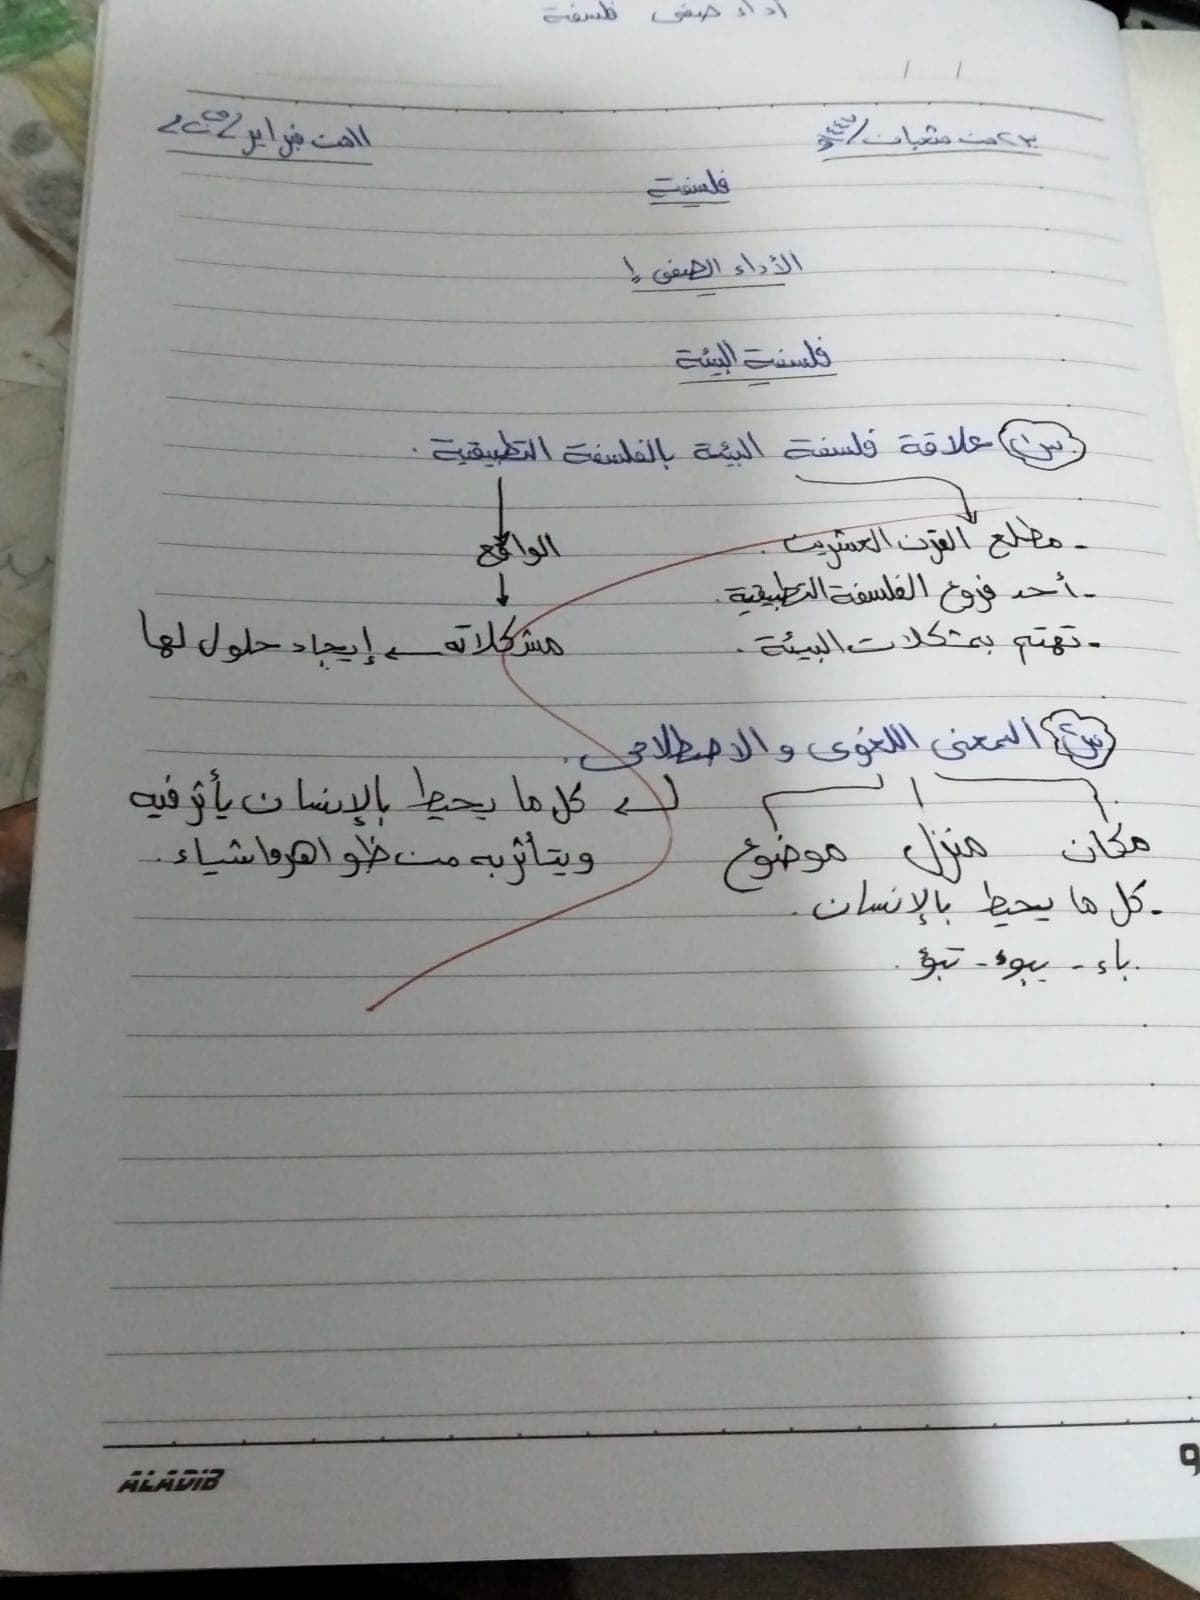 أداء صفى فلسفة
/ /
٢٣ من شعبان / ١٤٤٧هـ
١١ من فبراير /
فلسفة
الأداء الصفى ١
فلسفة البيئة
س١ علاقة فلسفة البيئة بالفلسفة التطبيقية .
- مطلع القرن العشرين . الواقع
- أحد فروع الفلسفة التطبيقية .
- تهتم بمشكلات البيئة . مشكلاته ← إيجاد حلول لها
س٢ المعنى اللغوى والاصطلاحى .
كل ما يحيط بالإنسان يأثر فيه
مكان منزل موضوع ويتأثر به من ظواهر وأشياء .
- كل ما يحيط بالإنسان .
باء - يبوء - تبوؤ .
ALADIB
9